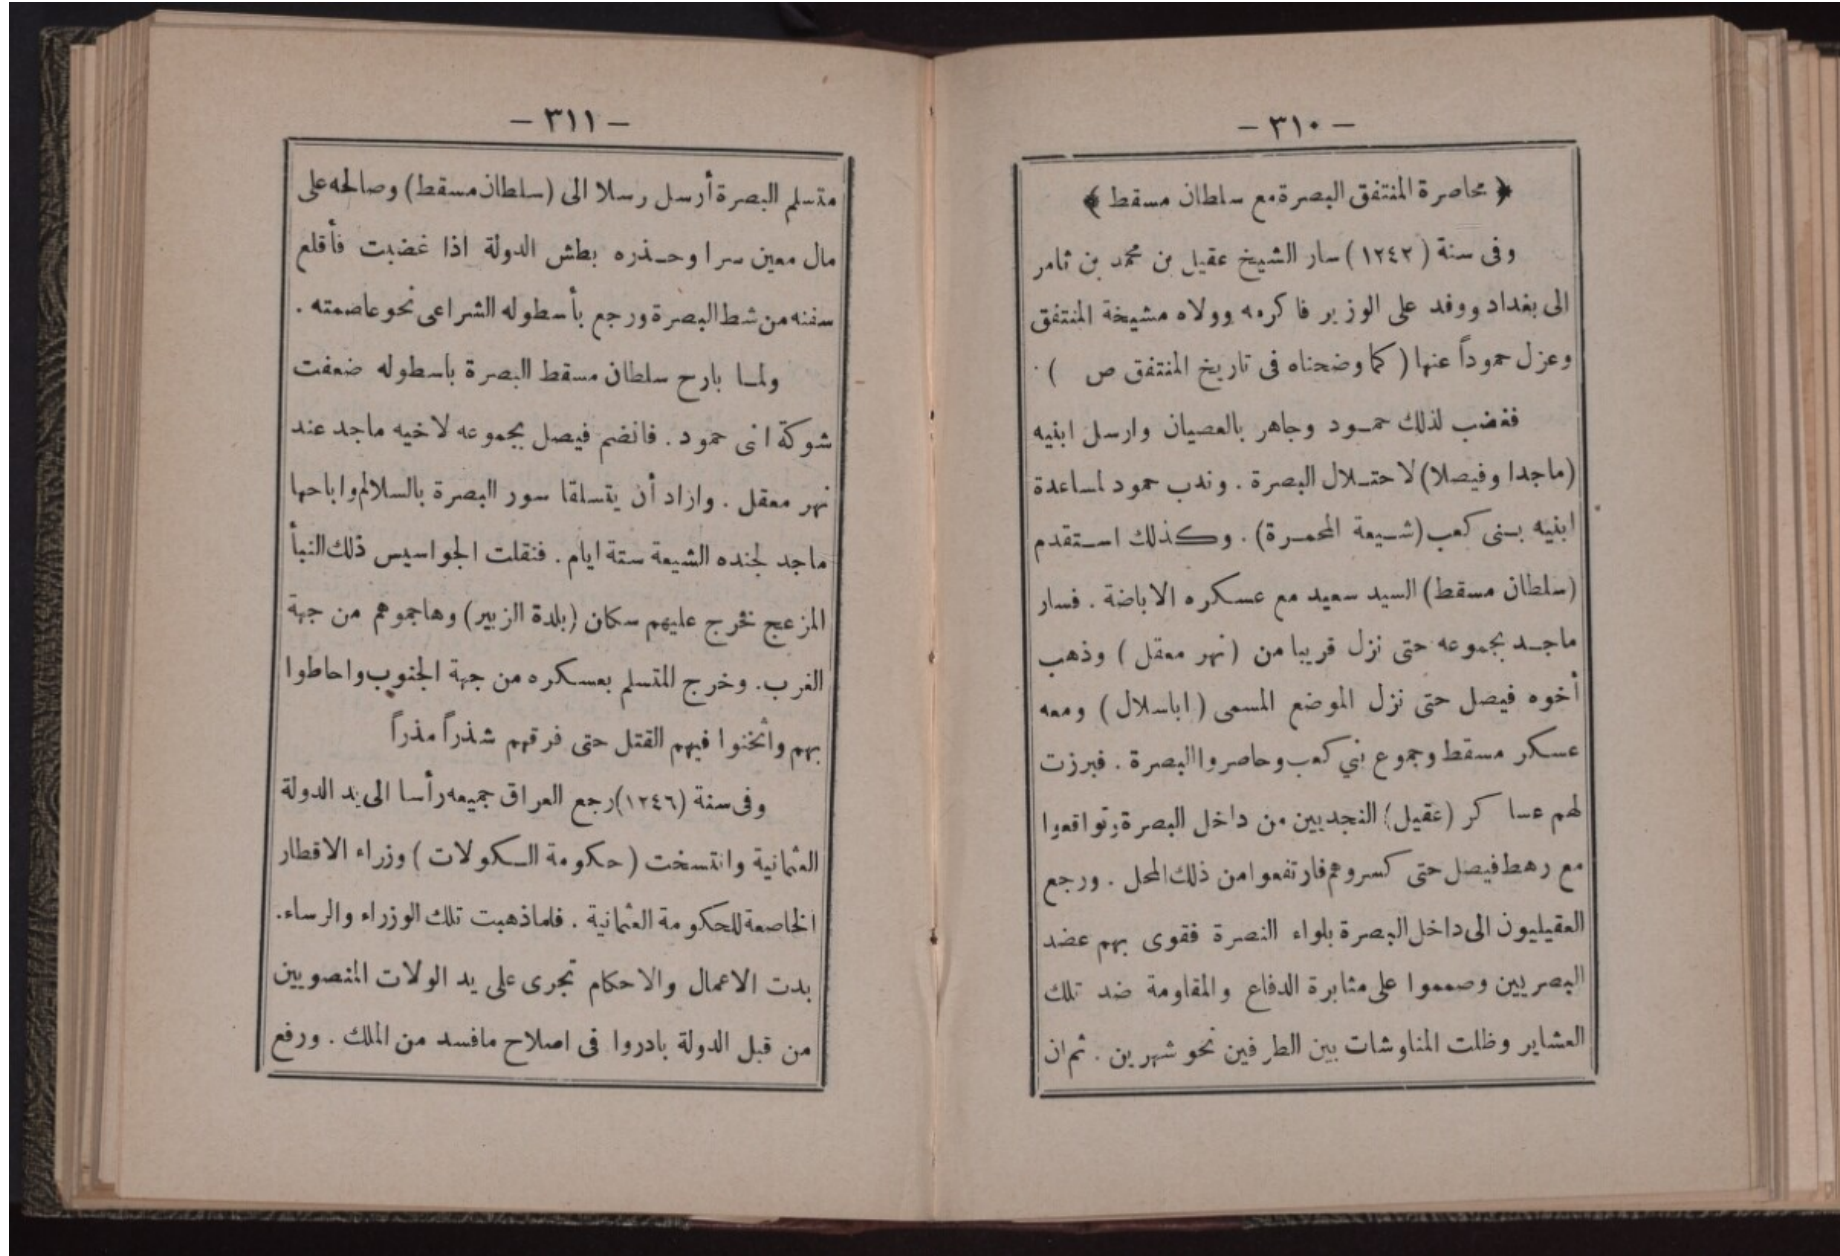 – ٣١٠ –
﴿ محاصرة المنتفق البصرة مع سلطان مسقط ﴾
وفى سنة (١٢٤٢) سار الشيخ عقيل بن محمد بن ثامر
الى بغداد ووفد على الوزير فاكرمه وولاه مشيخة المنتفق
وعزل حموداً عنها (كما وضحناه فى تاريخ المنتفق ص )
فغضب لذلك حمود وجاهر بالعصيان وارسل ابنيه
(ماجدا وفيصلا) لاحتلال البصرة . وندب حمود لمساعدة
ابنيه بنى كعب (شيعة المحمرة) . وكذلك استقدم
(سلطان مسقط) السيد سعيد مع عسكره الاباضة . فسار
ماجد بجموعه حتى نزل قريبا من (نهر معقل) وذهب
أخوه فيصل حتى نزل الموضع المسمى (اباسلال) ومعه
عسكر مسقط وجموع بني كعب وحاصروا البصرة . فبرزت
لهم عساكر (عقيل) النجديين من داخل البصرة وتواقعوا
مع رهط فيصل حتى كسروهم فارتفعوا من ذلك المحل . ورجع
العقيليون الى داخل البصرة بلواء النصرة فقوى بهم عضد
البصريين وصمموا على مثابرة الدفاع والمقاومة ضد تلك
العشاير وظلت المناوشات بين الطرفين نحو شهرين . ثم ان
– ٣١١ –
متسلم البصرة أرسل رسلا الى (سلطان مسقط) وصالحه على
مال معين سرا وحذره بطش الدولة اذا غضبت فأقلع
سفنه من شط البصرة ورجع بأسطوله الشراعى نحو عاصمته .
ولما بارح سلطان مسقط البصرة باسطوله ضعفت
شوكة انى حمود . فانضم فيصل بجموعه لاخيه ماجد عند
نهر معقل . وازاد أن يتسلقا سور البصرة بالسلالم واباحها
ماجد لجنده الشيعة ستة ايام . فنقلت الجواسيس ذلك النبأ
المزعج فخرج عليهم سكان (بلدة الزبير) وهاجموهم من جهة
الغرب . وخرج المتسلم بعسكره من جهة الجنوب واحاطوا
بهم وأثخنوا فيهم القتل حتى فرقهم شذراً مذراً
وفى سنة (١٢٤٦) رجع العراق جميعه رأسا الى يد الدولة
العثمانية وانتسخت (حكومة الكولات) وزراء الاقطار
الخاصعة للحكومة العثمانية . فلما ذهبت تلك الوزراء والرساء.
بدت الاعمال والاحكام تجرى على يد الولات المنصوبين
من قبل الدولة بادروا فى اصلاح مافسد من الملك . ورفع